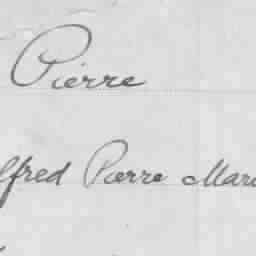 Pierre
lfred Pierre Mari